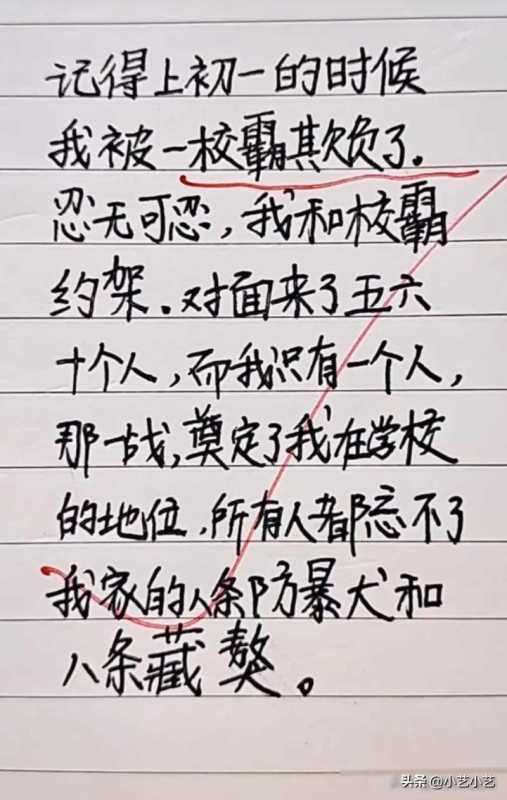 记得上初一的时候
我被一校霸欺负了。
忍无可忍，我和校霸
约架。对面来了五六
十个人，而我只有一个人，
那一战，奠定了我在学校
的地位，所有人都忘不了
我家的八条防暴犬和
八条藏獒。
头条 @小艺小艺